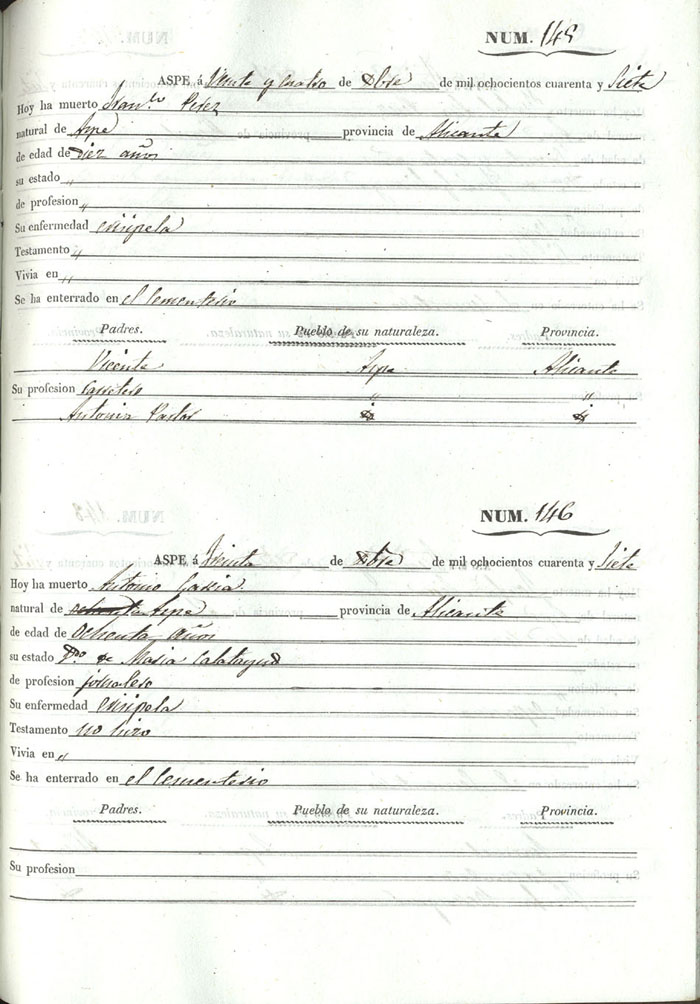 NUM. 145
ASPE, á Veinte y Cuatro de Dbre de mil ochocientos cuarenta y Siete
Hoy ha muerto Fran.co Perez
natural de Aspe provincia de Alicante
de edad de diez años
su estado "
de profesion "
Su enfermedad erisipela
Testamento "
Vivia en "
Se ha enterrado en el Cementerio
Padres. Pueblo de su naturaleza. Provincia.
Vicente Aspe Alicante
Su profesion " "
Antonia Pastor
NUM. 146
ASPE, á Treinta de Dbre de mil ochocientos cuarenta y Siete
Hoy ha muerto Antonio Garcia
natural de Aspe provincia de Alicante
de edad de Ochenta años
su estado V.do de Maria Calatayud
de profesion jornalero
Su enfermedad erisipela
Testamento no hizo
Vivia en "
Se ha enterrado en el Cementerio
Padres. Pueblo de su naturaleza. Provincia.
Su profesion